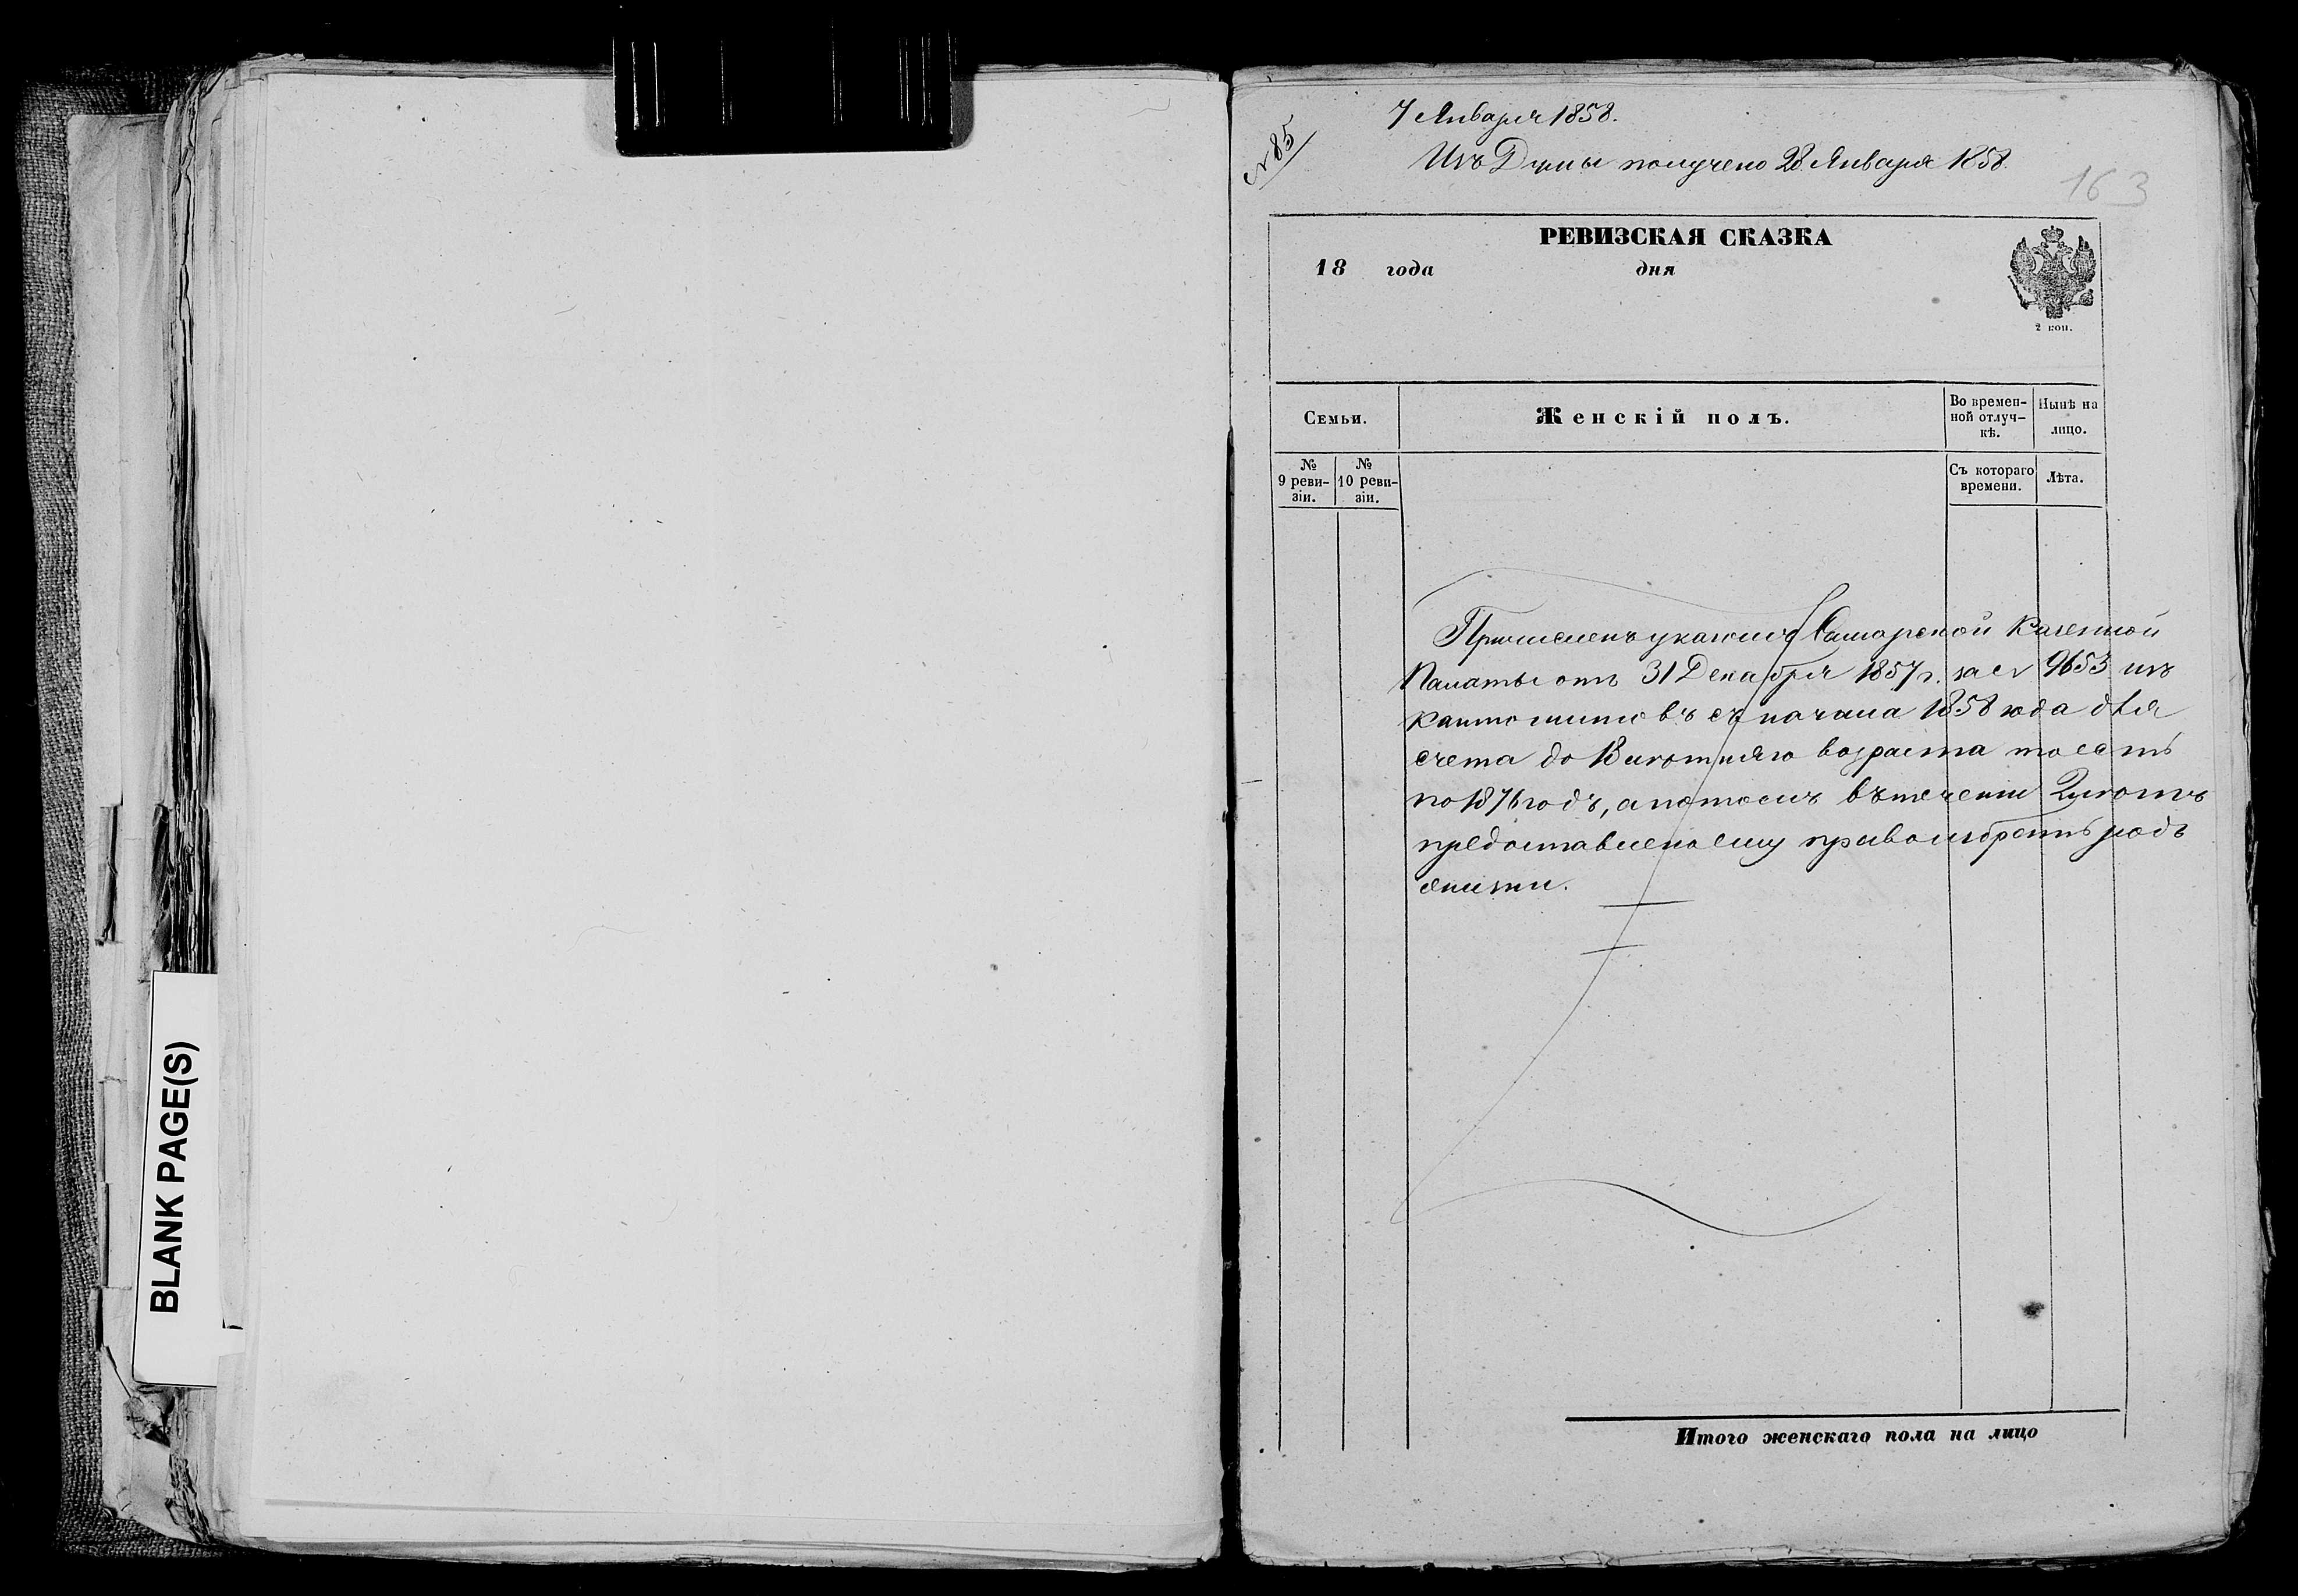 7 Января 1858.
№ 85
Изъ Думы получено 28 Января 1858.
163
РЕВИЗСКАЯ СКАЗКА
18 года дня
2 коп.
Семьи.
Женскій полъ.
Во времен-
ной отлуч-
кѣ.
Нынѣ на
лицо.
№
9 реви-
зіи.
№
10 реви-
зіи.
Съ котораго
времени.
Лѣта.
Причисленъ указомъ Самарской Казенной
Палаты отъ 31 Декабря 1857 г. за № 9653 изъ
кантонистовъ съ начала 1858 года для
счета до 18 лѣтняго возраста то есть
по 1876 годъ, а потомъ въ теченіи 2х лѣтъ
предоставлено ему право избрать родъ
жизни.
Итого женскаго пола на лицо
BLANK PAGE(S)